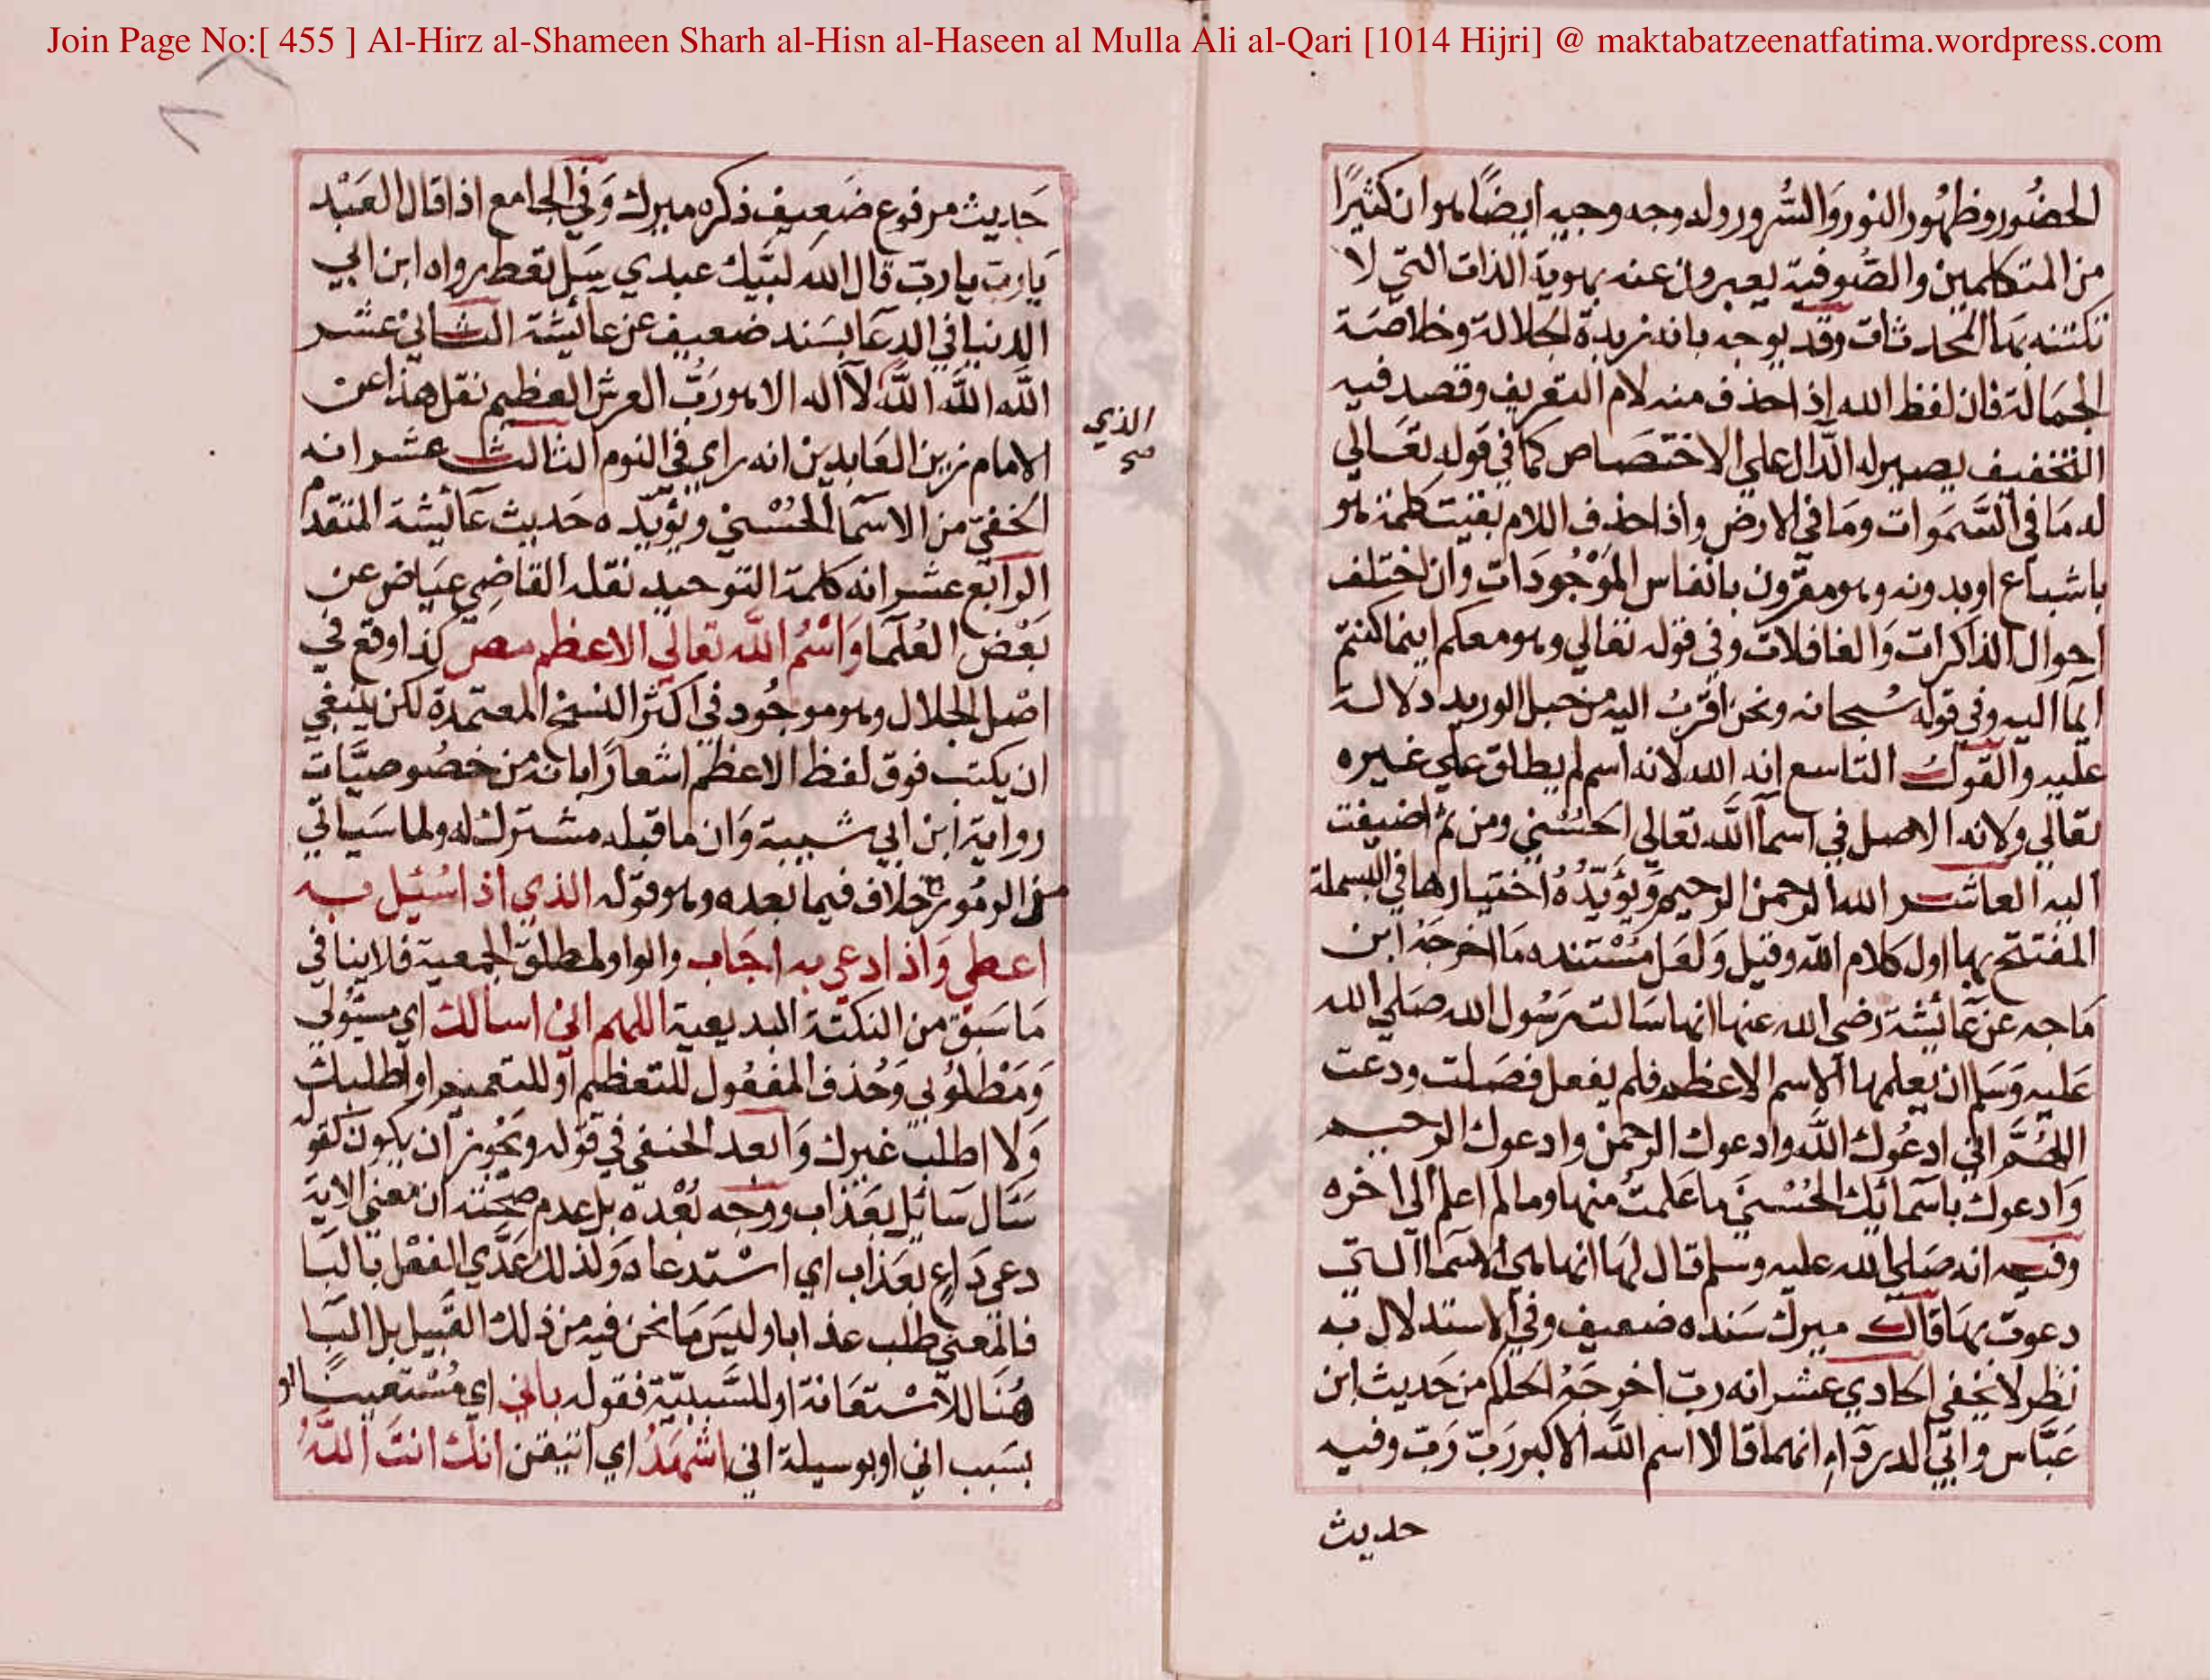 Join Page No:[ 455 ] Al-Hirz al-Shameen Sharh al-Hisn al-Haseen al Mulla Ali al-Qari [1014 Hijri] @ maktabatzeenatfatima.wordpress.com
الحضُور وظهُور النور وَالسُّرور وله وجه وجيه ايضًا هو ان كثيرًا
من المتكلمين والصُّوفية يعبرون عنه بهوية الذات التي لا
تكتنه بها المحدثات وقد يوجه بانه زبدة الجلالة وخلاصَة
الجمَالة فان لفظ الله اذا حذف منه لام التعَريف وقصد فيه
التخفيف يصير له الدَّال علي الاختصَاص كما في قوله تعَالي
له مَا في السَّمَوات ومَا في الارض واذا حذف اللام بقيت كلمة هو
باشباع او بدونه وهو مقرون بانفاس الموْجُودَات وان اختلف
احوال الذاكرات وَالغافلات وفي قوله تعَالي وهو معكم اينما كنتم
ايمَا اليه وفي قوله سُبحانه ونحن اقرَبُ اليه من حبل الوريد دلالة
عليه والقول التاسع انه الله لانه اسم لم يطلق علي غيره
تعَالي ولانه الاصل في اسمآ اللَّه تعالي الحسُنني ومن ثم اضيفت
اليه العاشر الله الرحمن الرحيم وَيؤَيّدُهُ اختيارها في البسملة
المفتتح بها اول كلام اللّه وقيل وَلعَل مسْتنده مَا اخرجَه ابن
مَاجه عن عَائشة رضي الله عنها انها سَالت رسُول الله صَلي الله
عَليه وَسَلم ان يعلمها الاسم الاعظم فلم يفعل فصَلت ودعت
اللهُمَّ اني ادعُوك اللَّه وادعوك الرحمن وادعوك الرحيم
وَادعوك باسَمائك الحُسْني ما عَلمتُ منها وما لم اعلم الي اخره
وفيه انه صَلي الله عليه وسلم قال لهَا انها لهي الاسَما التي
دعوت بهَا قال ميرك سَنده ضعيف وفي الاستدلال به
نظر لا يخفي الحادي عشر انه ربّ اخرجَهُ الحاكم من حَديث ابن
عَبَّاس وابي الدردَاءِ انهما قالا اسم اللَّه الاكبر رَبّ رَبّ وفيه
حديث
حَديث مرفوع ضَعيف ذكره ميرك وَفي الجامع اذا قال العَبْد
يَارب يا ربّ قال الله لبَّيك عبدي سَل تعَط رواه ابن ابي
الدنيا في الدعَا بسَند ضعيف عن عَائشة الثاني عشر
اللَّه اللَّه اللَّه لآ اله الا هو ربُّ العرش العظيم نقل هذا عن
الامام زين العَابدين انه راي في النوم الثالث عشر انه
الذي
صح
الخفيّ من الاسمآ الحُسْني ويُؤيّده حَديث عَائشة المتقدم
الرابع عشر انه كلمة التوحيد نقله القاضِي عيَاض عن
بَعْض العُلمَا وَاسْمُ اللَّه تعَالي الاعظم مص كذا وقع في
اصْل الجلال وهو موجُود في اكثر النسَخ المعتمدة لكن ينبغي
ان يكتب فوق لفظ الاعظم اشعارًا بانه من خصُوصيَّات
رواية ابن ابي شيبة وَان ما قبله مشترك له ولما سَياتي
من الرمُوز خلاف فيما بعده وهو قوله الذي اذا سُئِل به
اعطي وَاذا دعي به اجَاب والواو لمطلق الجمعية فلا ينافي
مَا سَبق من النكتة البديعية اللهم اني اسالك اي مسئولي
وَمَطْلُوبي وَحُذف المفعُول للتعظيم او للتعميم او اطلبك
وَلا اطلب غيرك وَابعد الحنفي في قوله ويجُوز ان يكون كقوله
سَئَال سَائل بعَذاب ووجه بُعْده بل عدم صحّته ان معني الاية
دعي دَاعٍ بعَذاب اي استدعاه وَلذلك عَدَّي الفعْل بالبَا
فالمعني طلب عذابا وليسَ مَا نحن فيه من ذلك القبيل بل البَا
هُنَا للاسْتعَانة او للسَّببيّة فقوله باني اي مُسْتعينا او
بسَبب اني او بوسيلة اني اشهَدُ اي اتيقن انك انتَ اللَّهُ